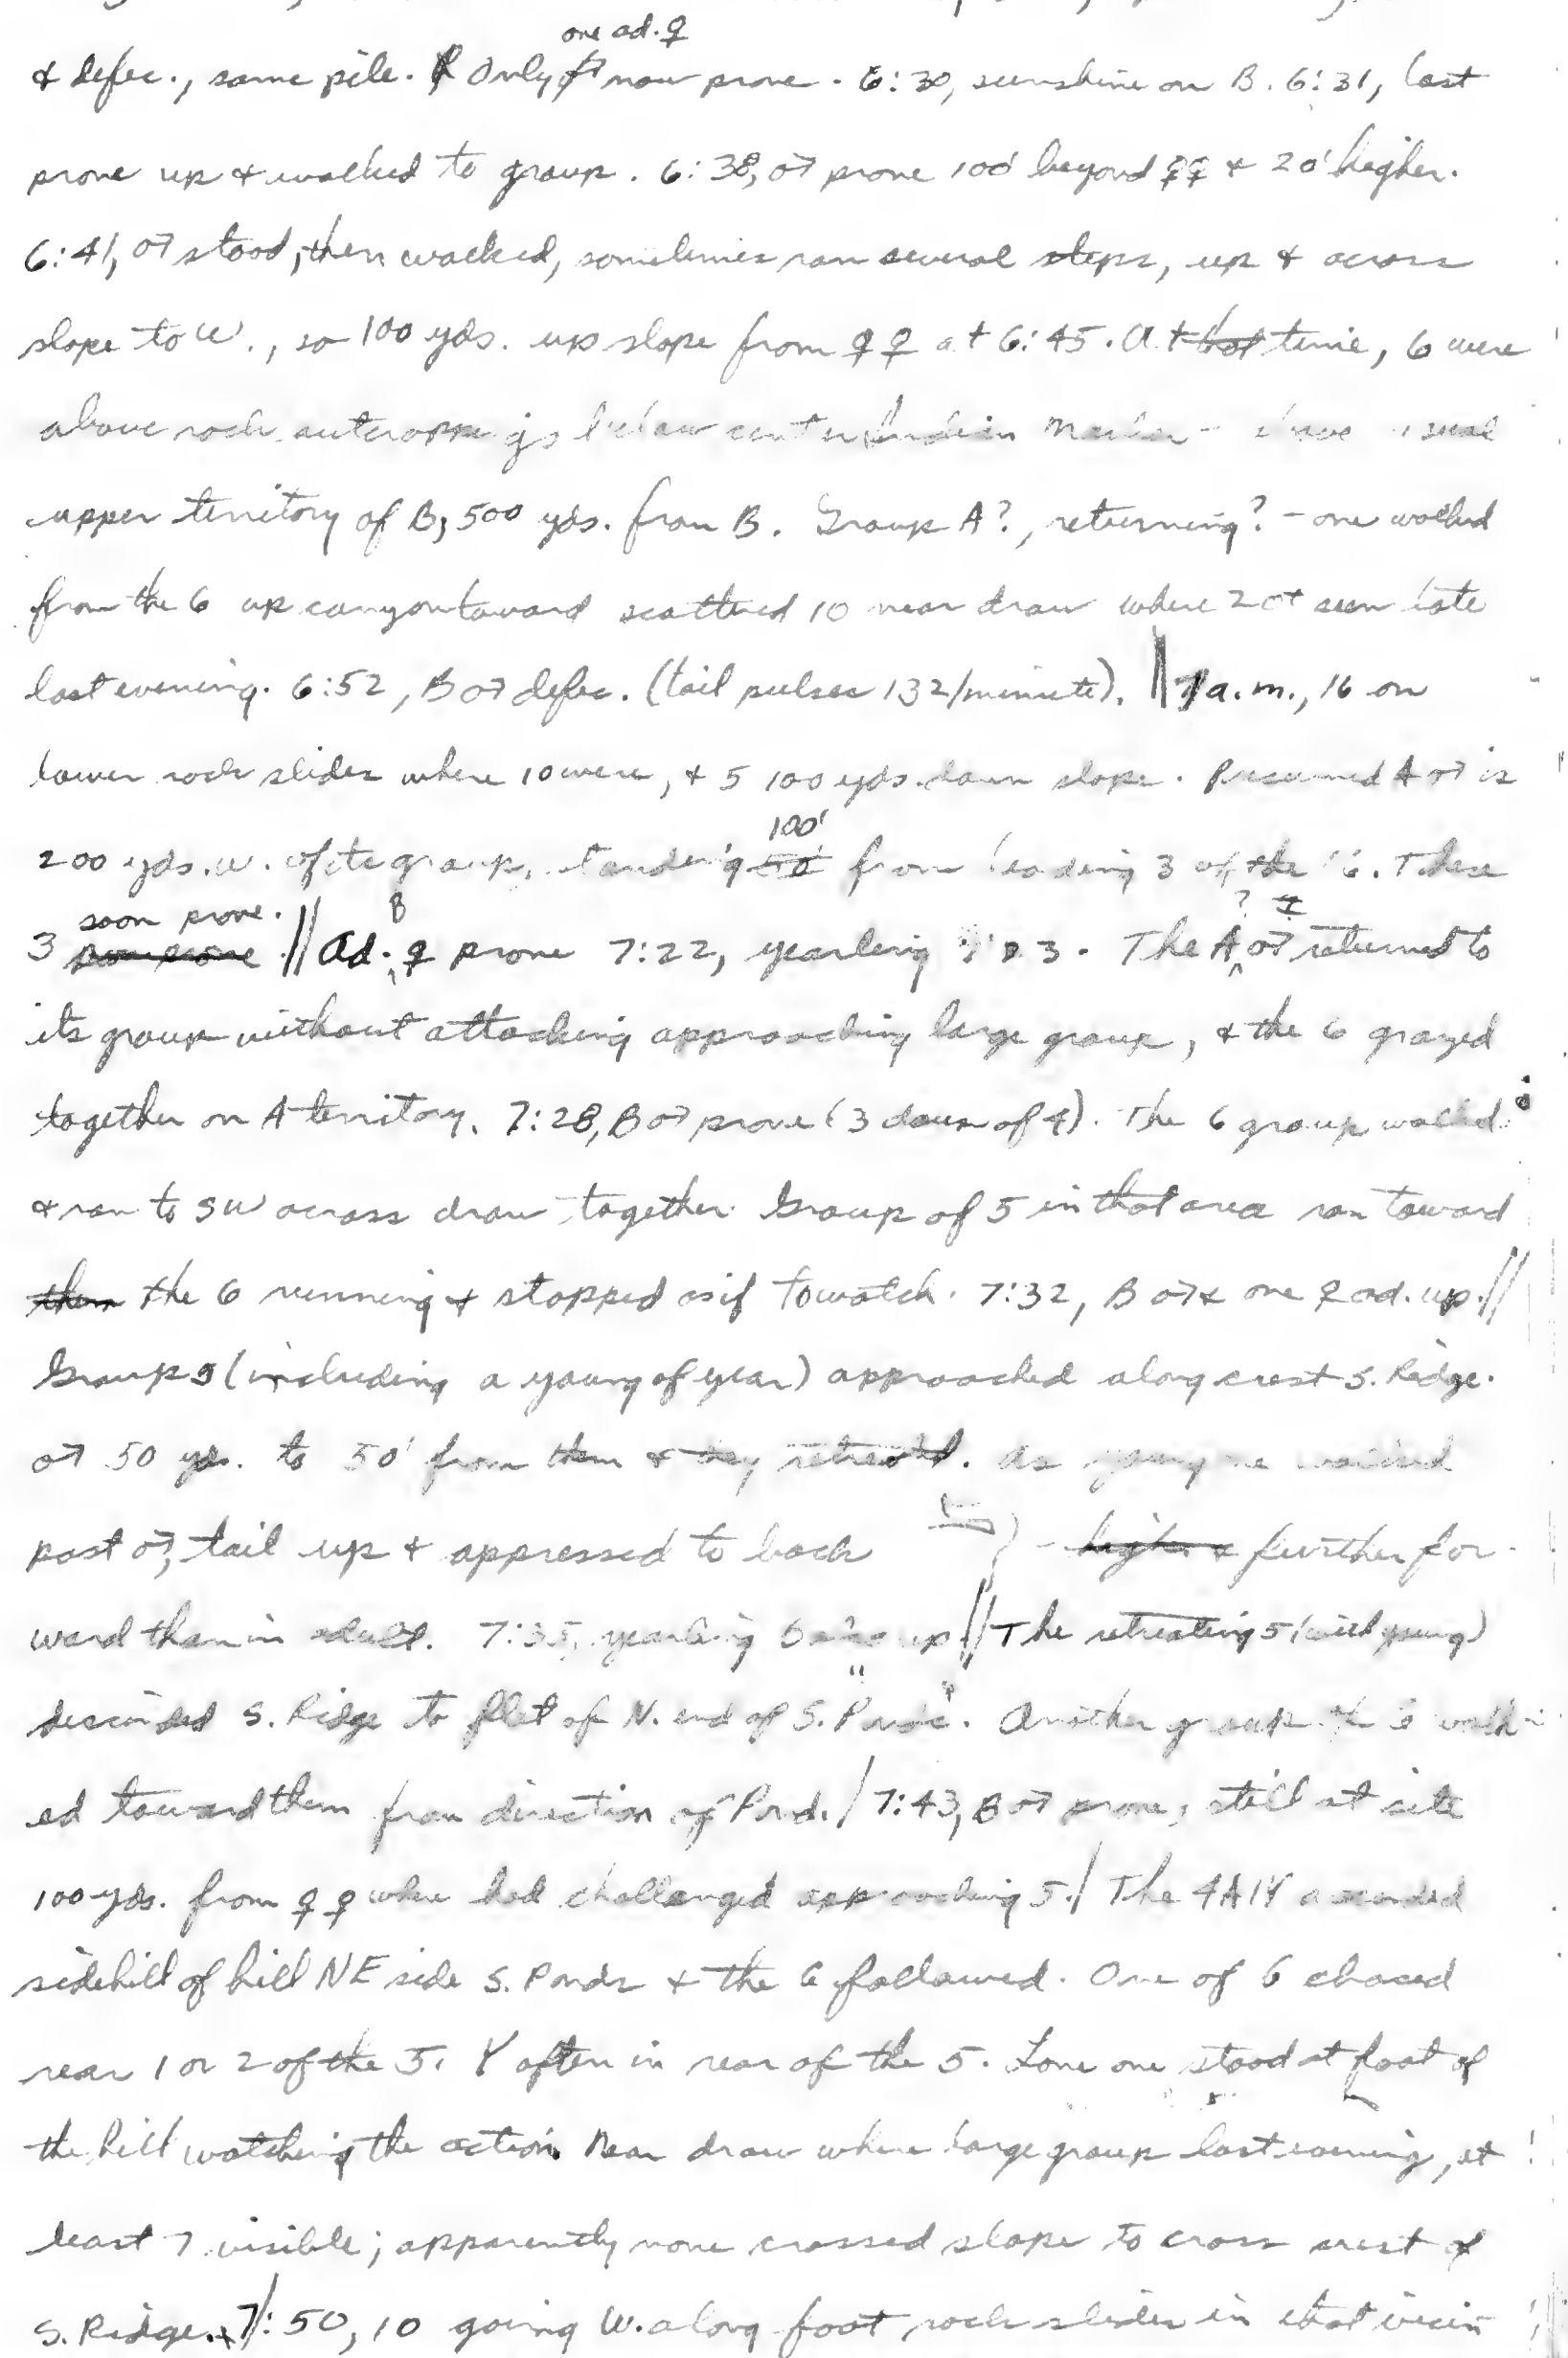 one ad. ♀
& defec., same pile. Only ♂ now prone. 6:30, sunshine on B. 6:31, last
prone up & walked to group. 6:38, ♂ prone 100' beyond ♀♀ & 20' higher.
6:41, ♂ stood, then walked, sometimes ran several steps, up & across
slope to W., so 100 yds. up slope from ♀♀ at 6:45. At that time, 6 were
above rock outcroppings below center Indian Marker - above usual
upper territory of B, 500 yds. from B. Group A?, returning? - one walked
from the 6 up canyon toward scattered 10 near draw where 20+ seen late
last evening. 6:52, B ♂ defec. (tail pulses 132/minute). || 7 a.m., 16 on
lower rock slides where 10 were, & 5 100 yds. down slope. Presumed A ♂ is
100'
200 yds. W. of its group, standing 50' from leading 3 of the 16. These
soon prone. B ? I
3 soon prone || Ad. ♀ prone 7:22, yearling 7:23. The A ♂ returned to
its group without attacking approaching large group, & the 6 grazed
together on A territory. 7:28, B ♂ prone (3 down of 4). The 6 group walked
& ran to SW across draw together. Group of 5 in that area ran toward
them the 6 running & stopped as if to watch. 7:32, B ♂ & one ♀ ad. up. ||
Group 5 (including a young of year) approached along crest S. Ridge.
♂ 50 yds. to 50' from them & they retreated. As young one walked
past ♂, tail up & appressed to back } - higher & further for-
ward than in adult. 7:35, yearling B also up || The retreating 5 (with young)
descended S. Ridge to flat of N. end of S. "Ponds". Another group of 6 walk-
ed toward them from direction of Pond. / 7:43, B ♂ prone, still at site
100 yds. from ♀♀ where had challenged approaching 5. / The 4A1Y ascended
sidehill of hill NE side S. Ponds & the 6 followed. One of 6 chased
rear 1 or 2 of the 5. Y often in rear of the 5. Lone one stood at foot of
the hill watching the action. Near draw where large group last evening, at
least 7 visible; apparently none crossed slope to cross crest of
S. Ridge. & 7:50, 10 going W. along foot rock slides in that vicin